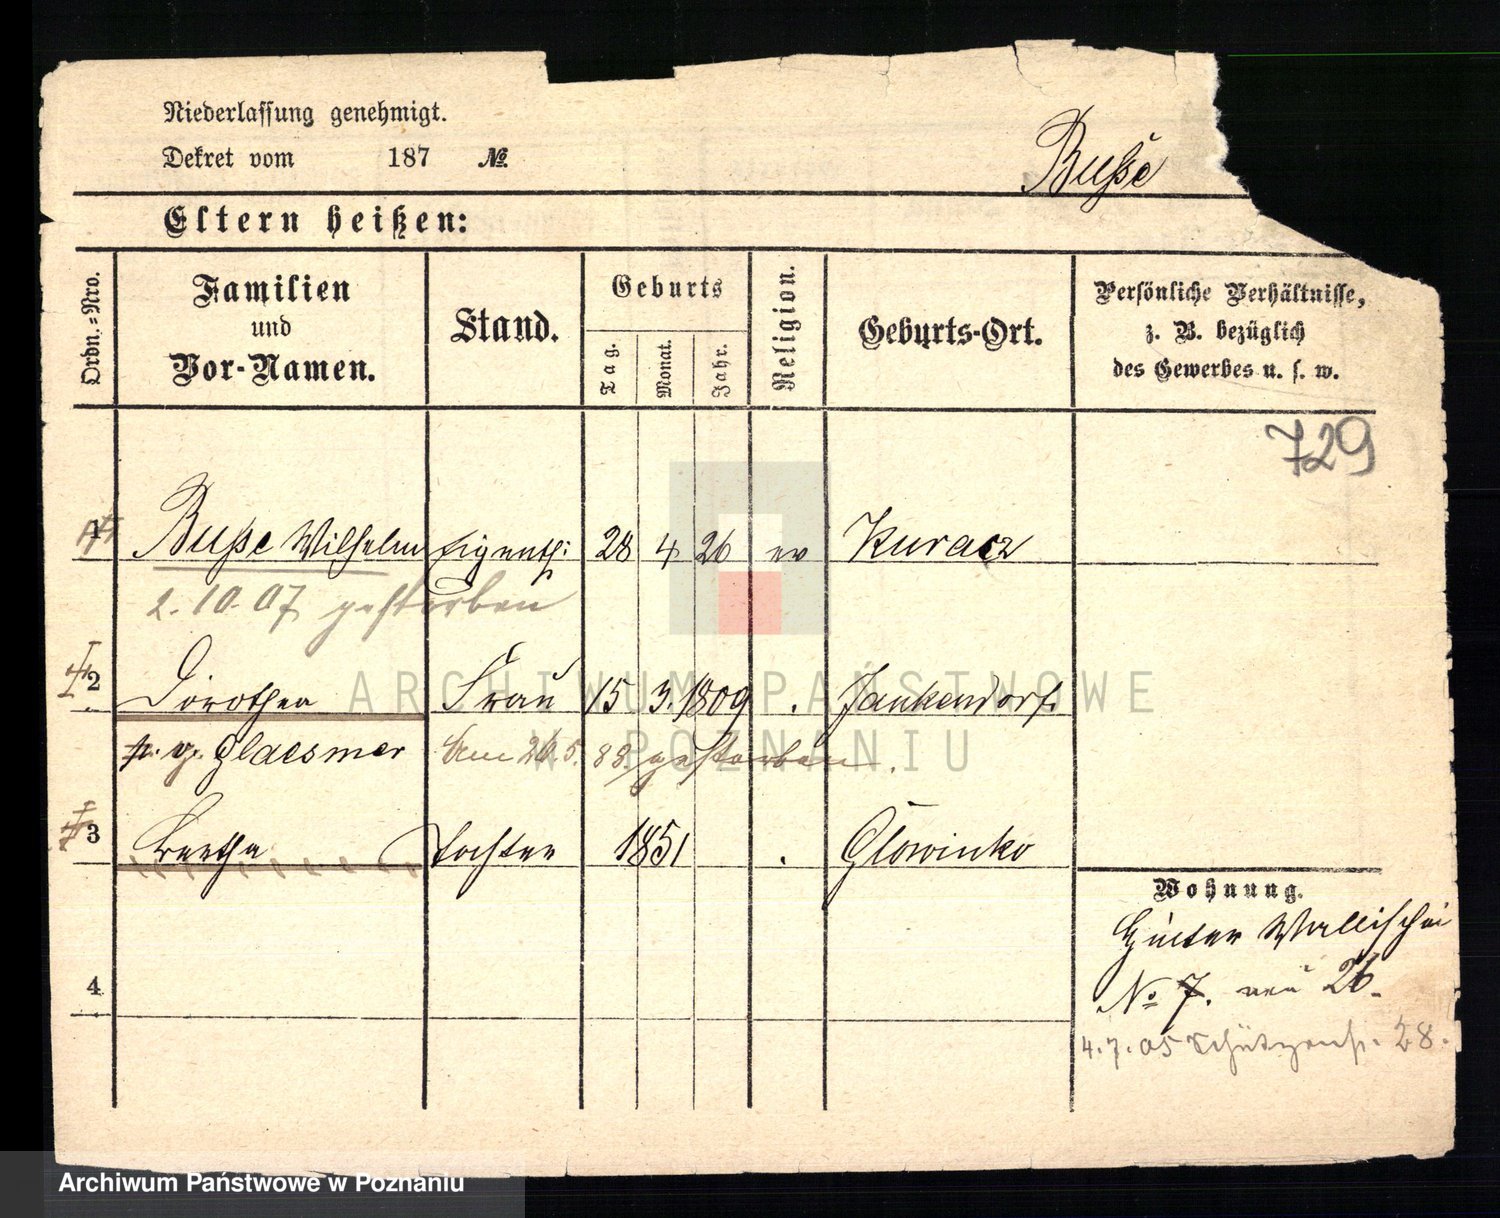 Niederlassung genehmigt.
Dekret vom 187 №
Busse
Eltern heißen:
Ordn.-Nro.
Familien und Vor-Namen.
Stand.
Geburts
Tag.
Monat.
Jahr.
Religion.
Geburts-Ort.
Persönliche Verhältnisse,
z. B. bezüglich
des Gewerbes u. s. w.
729
1 Busse Wilhelm Eigenth: 28 4 26 ev Kuracz
2.10.07 gestorben
2 Dorothea Frau 15 3. 1809 . Jankendorf
g. Glaesmer Am 26.5.88. gestorben.
3 Bertha Tochter 1851 . Glowinko
Wohnung.
Wallischei
No 7. neu 26.
4
4.7.05 Schützenstr. 28.
ARCHIWUM PAŃSTWOWE
W POZNANIU
Archiwum Państwowe w Poznaniu